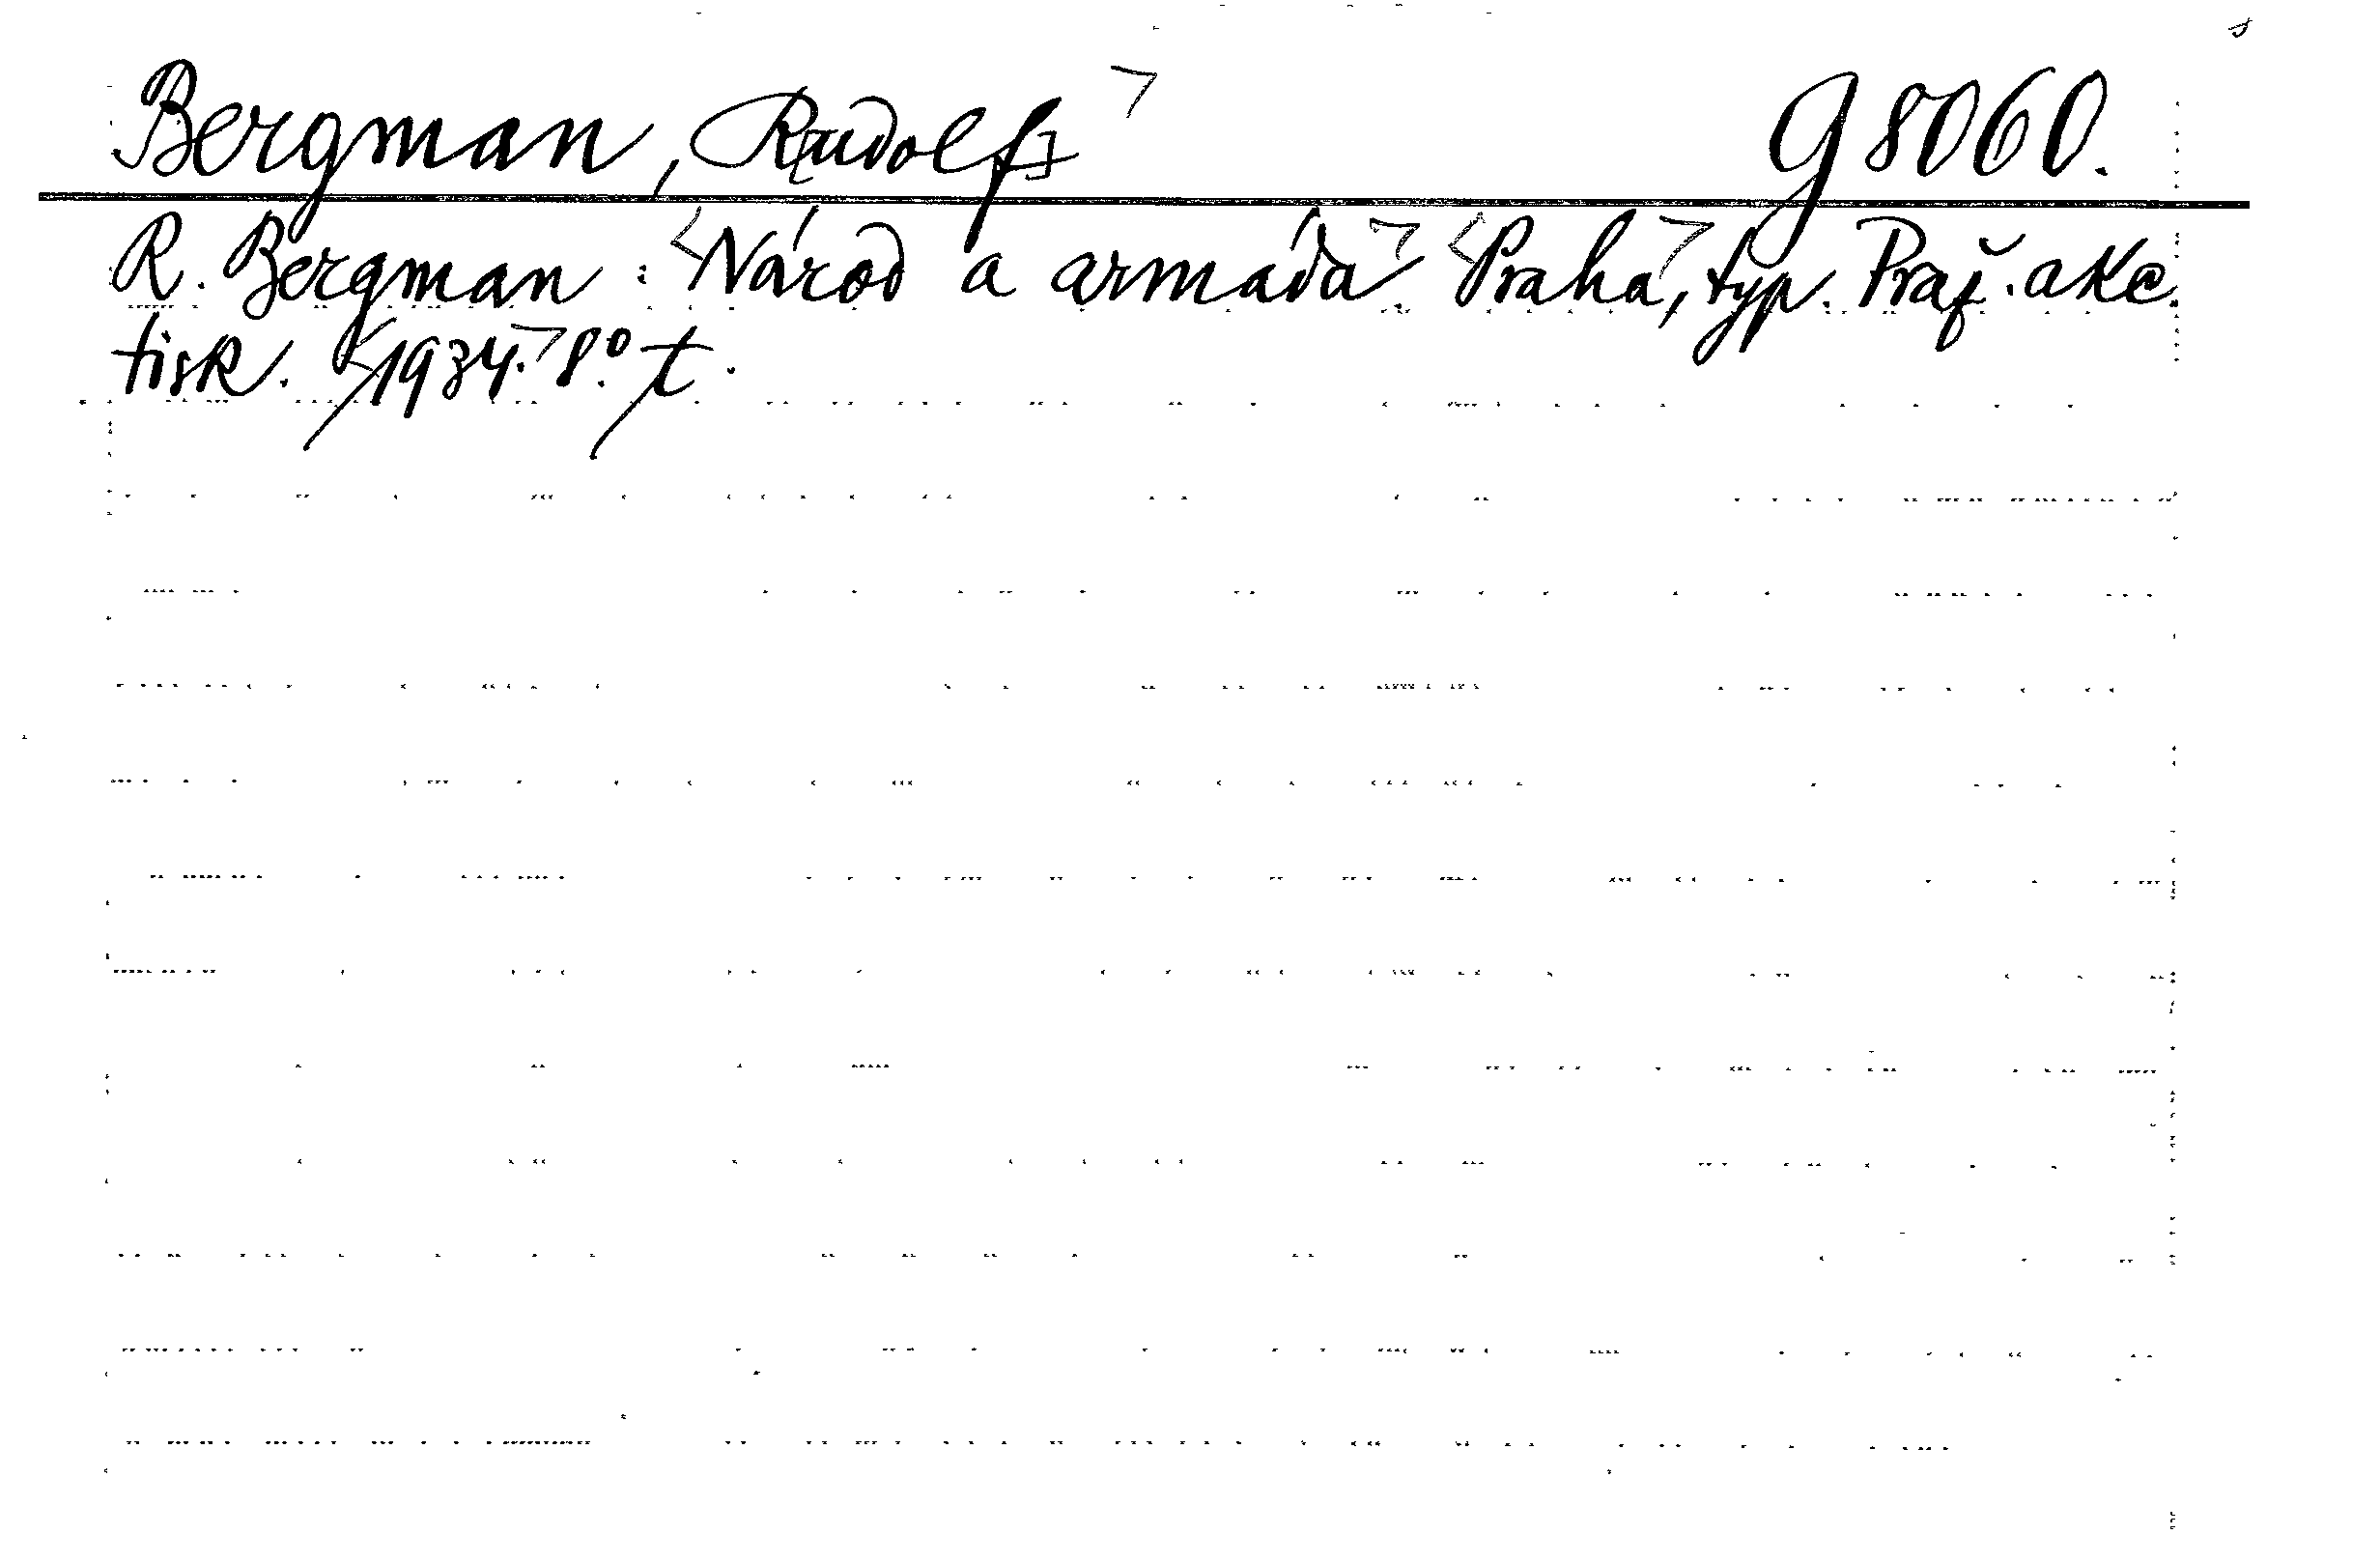 Bergman, R[udolf] g 8060.
R. Bergman: Národ a armáda. Praha, typ. Praž. akc.
tisk. 1934. 8.° t.